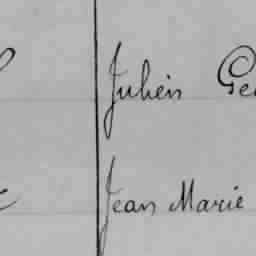 Julien Ge
Jean Marie